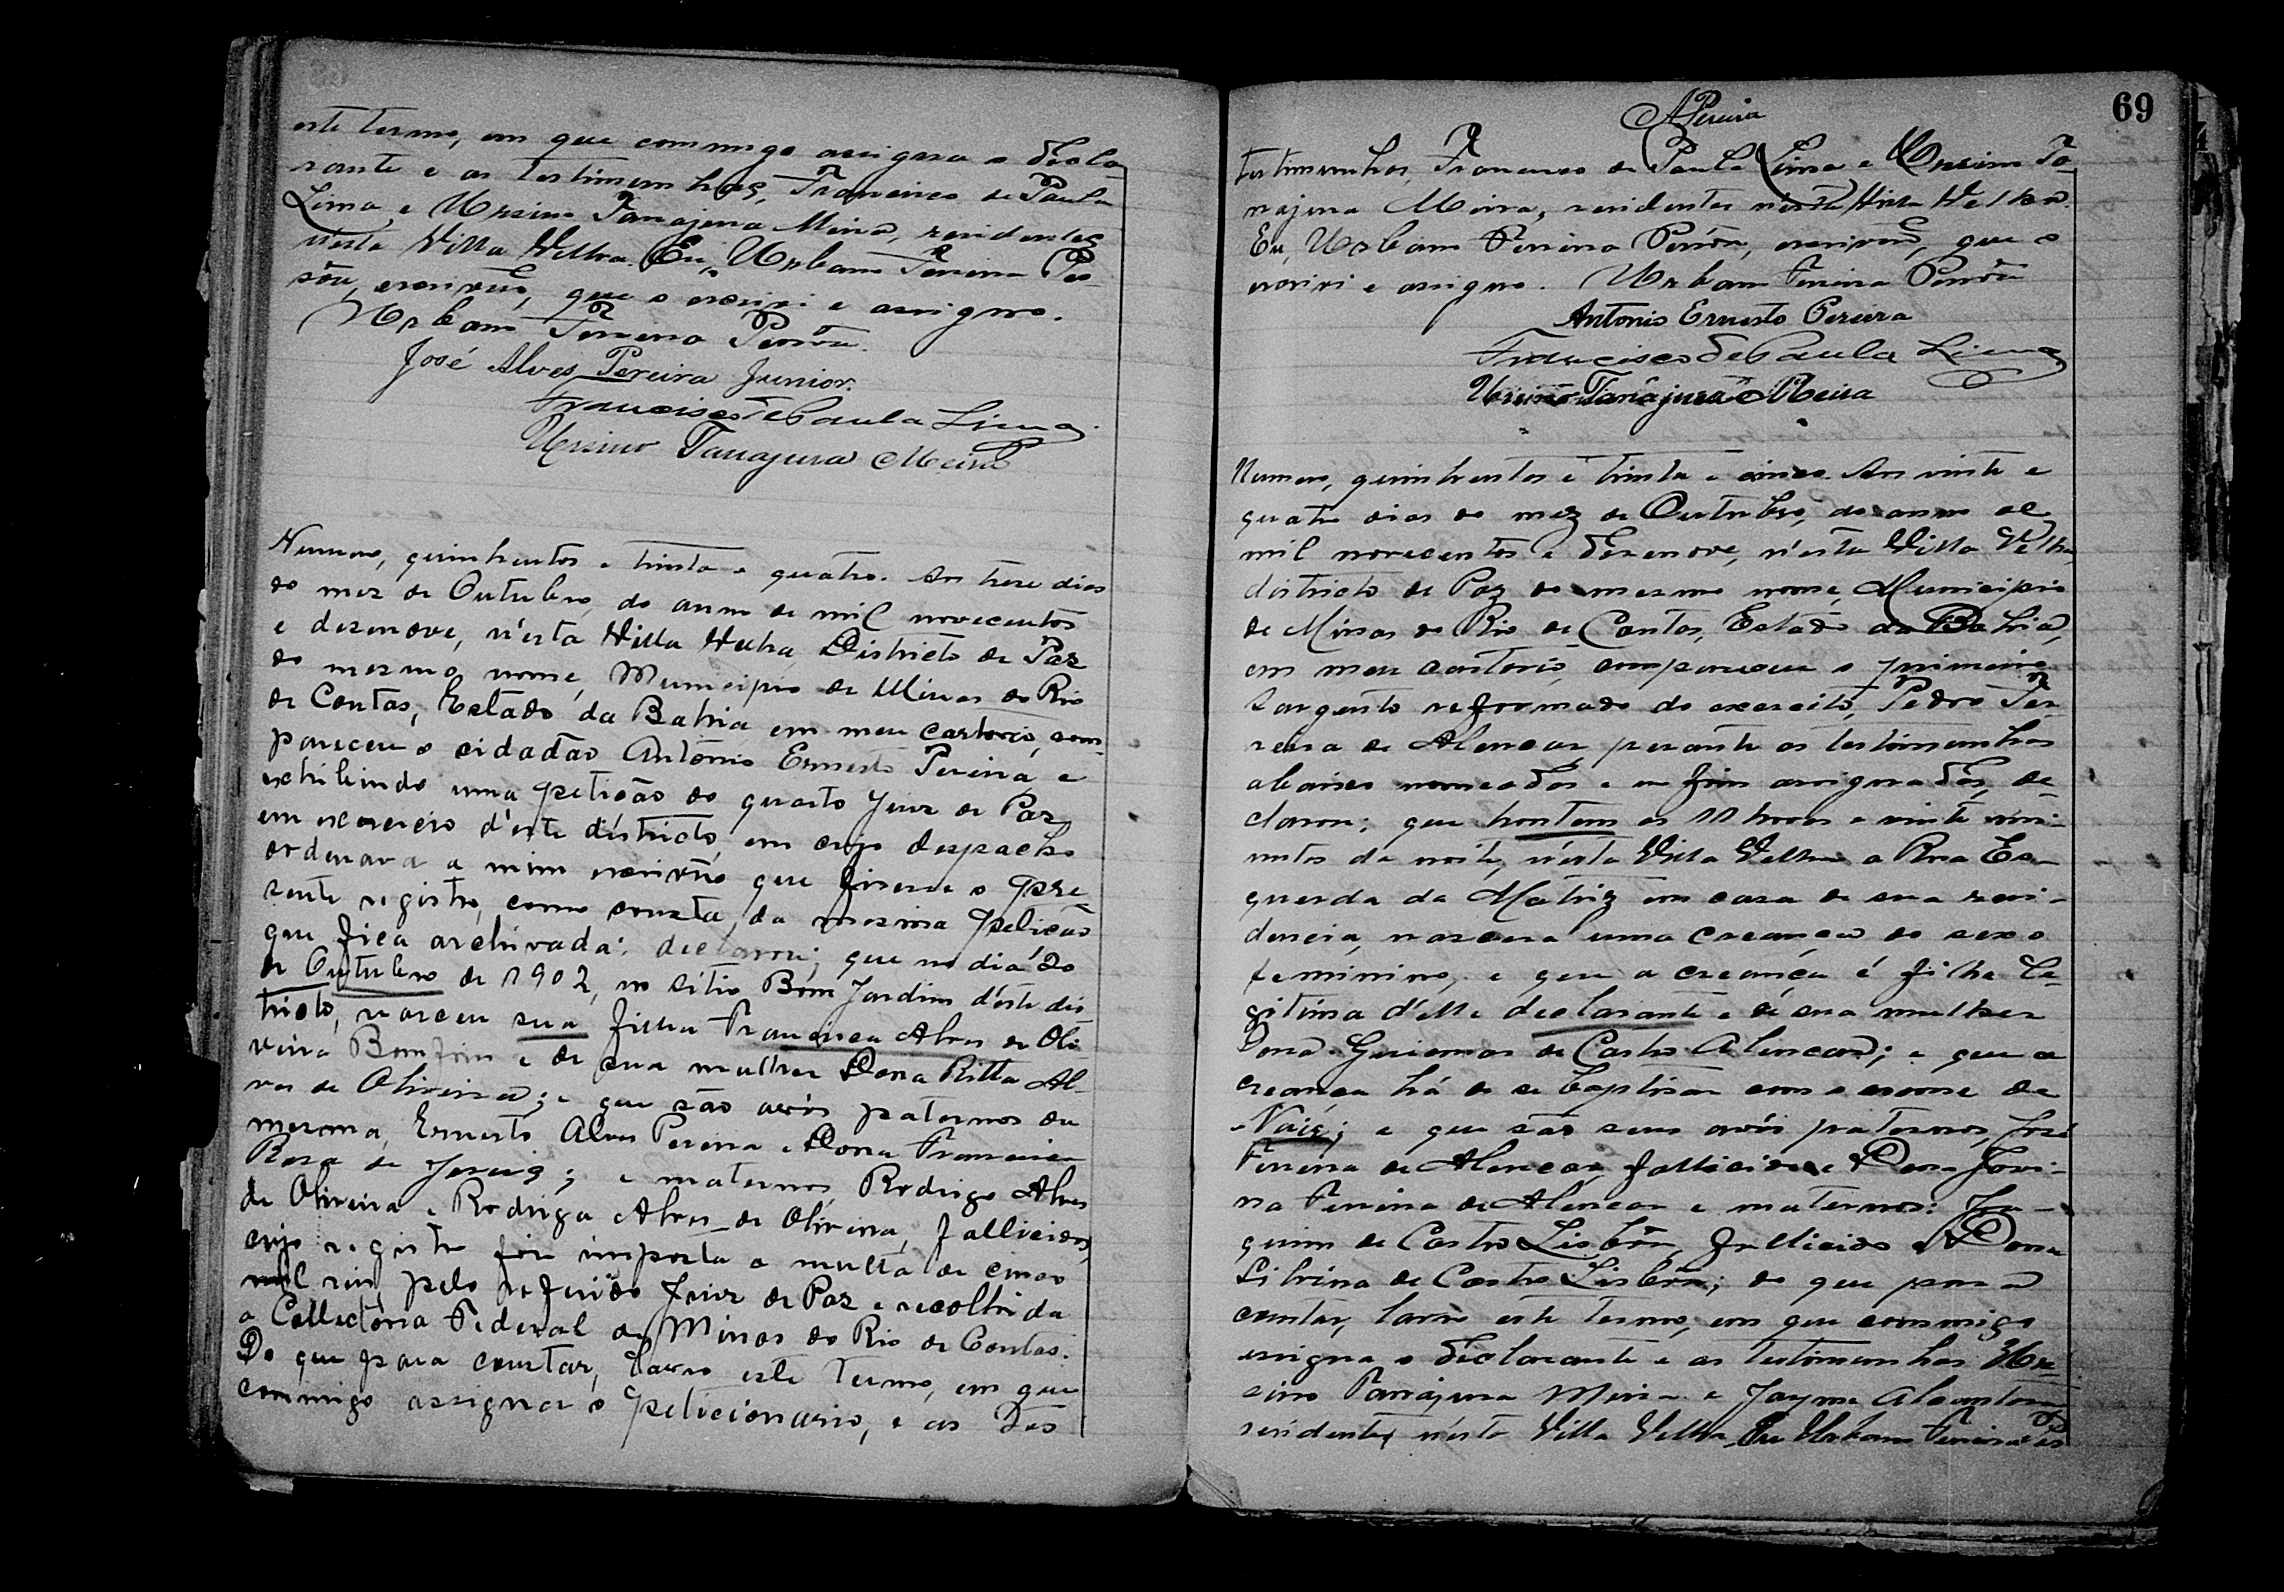 este termo, em que commigo assigna o decla-
rante e as testimunhas, Francisco de Paula
Lima e Ursino Tanajura Meira, residentes
n'esta Villa Velha. Eu, Urbano Ferreira Pes-
sôa, escrivão, que o escrivi e assigno.
Urbano Ferreira Pessôa.
José Alves Pereira Junior.
Francisco de Paula Lima
Ursino Tanajura Meira
Numero, quinhentos e trinta e quatro. Aos treze dias
do mez de Outubro, do anno de mil novecentos
e dezenove, n'esta Villa Velha, Districto de Paz
do mesmo nome, Municipio de Minas do Rio
de Contas, Estado da Bahia em meu cartorio, com-
pareceu o cidadão Antonio Ernesto Pereira e
exhibindo uma petição do quarto Juiz de Paz
em exercicio d'este districto, em cujo despacho
ordenava a mim escrivão que fizesse o pre-
sente registro, como consta da mesma petição
que fica archivada: declarou; que no dia 20
de Outubro de 1902, no sitio Bom Jardim d'este dis-
tricto, nasceu sua filha Francisca Alves de Oli-
veira Bomfim e de sua mulher Dona Ritta Al-
ves de Oliveira; e que são avós paternos da
mesma, Ernesto Alves Pereira e Dona Francisca
Rosa de Jesus; e maternos, Rodrigo Alves
de Oliveira e Rodriga Alves de Oliveira, fallicidos,
cujo registro foi imposta a multa de cinco
mil reis, pelo referido Juiz de Paz e recolhida
a Collectoria Federal de Minas do Rio de Contas.
Do que para constar, lavro este termo, em que
commigo assigna o peticionario, e as tes
69
APereira
testimunhas, Francisco de Paula Lima e Ursino Ta-
najura Meira, residentes n'esta Villa Velha.
Eu, Urbano Ferreira Pessôa, escrivão, que o
escrivi e assigno. Urbano Ferreira Pessôa
Antonio Ernesto Pereira
Francisco de Paula Lima
Ursino Tanajura Meira
Numero, quinhentos e trinta e cinco. Aos vinte e
quatro dias do mez de Outubro, do anno de
mil novecentos e dezenove, n'esta Villa Velha,
districto de Paz do mesmo nome, Municipio
de Minas do Rio de Contas, Estado da Bahia,
em meu cartorio, compareceu o primeiro
Sargento reformado do exercito, Pedro Fer-
reira de Alencar, perante as testimunhas
abaixo nomeados e em fim assignados, de-
clarou; que hontem as 11 horas e vinte mi-
nutos da noite, n'esta Villa Velha a Rua Es-
querda da Matriz em casa de sua resi-
dencia, nascera uma creança do sexo
feminino, e que a creança é filha le-
gitima d'elle declarante e de sua mulher
Dona Guiomar de Castro Alencar; e que a
creança há de se baptisar com o nome de
Nair; e que são seus avós paternos, José
Ferreira de Alencar, fallicido e Dona Jovi-
na Ferreira de Alencar e maternos: Joa-
quim de Castro Lisbôa, fallicido e Dona
de Castro Lisbôa; do que para
constar, lavro este termo, em que commigo
assigna o declarante e as testimunhas Ur-
sino Tanajura Meira e Jayme Alcantara
residentes n'esta Villa Velha. Eu Urbano Ferreira Pes